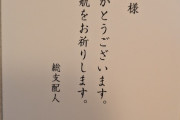 様
がとうございます。
航をお祈りします。
総支配人